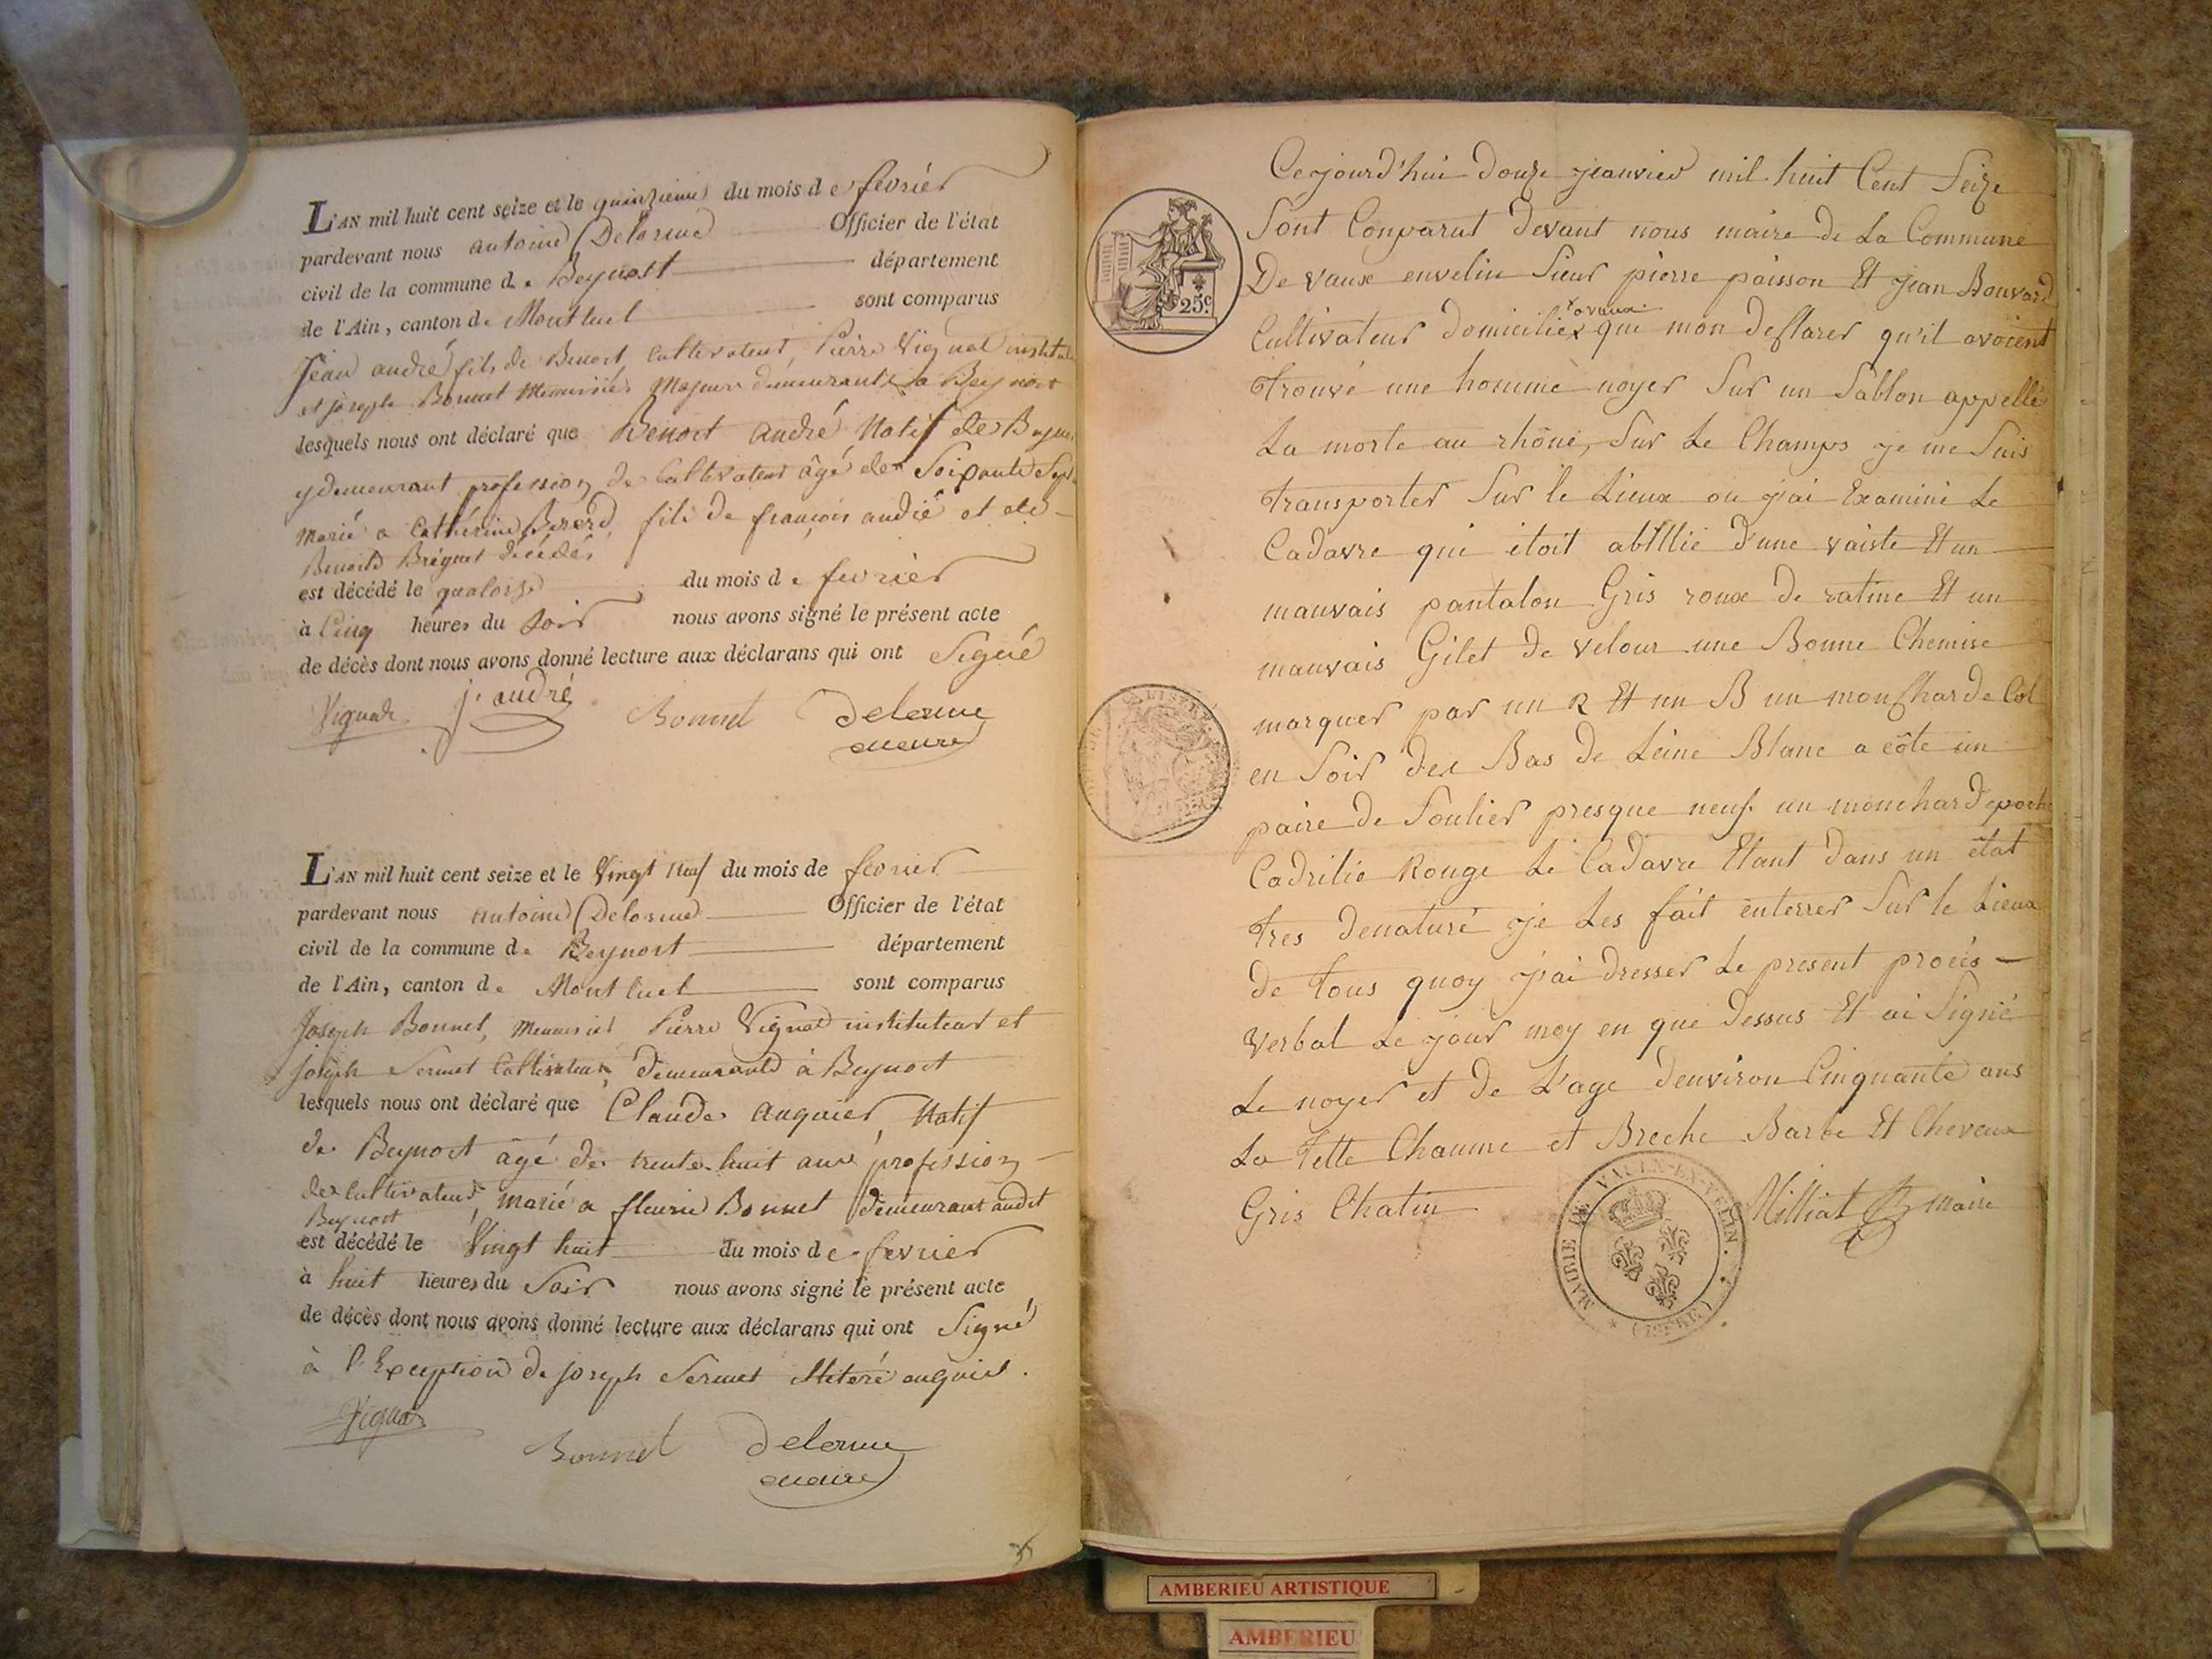 L'AN mil huit cent seize et le quinzieme du mois de fevrier
pardevant nous antoine Delorme Officier de l'état
civil de la commune de Beynost département
de l'Ain, canton de Montluel sont comparus
Jean andré fils de Benoit, Cultivateur, Pierre Vignat
et joseph Bonnet Menuisier Majeurs demeurants a Beynost
lesquels nous ont déclaré que Benoit andré Natif de
y demeurant profession de Cultivateur âgé de Soixante Sept
marié a Cathérine Bererd, fils de françois andré et de
Benoite Brégnet décédés
est décédé le quatorze du mois de fevrier
à Cinq heures du Soir nous avons signé le présent acte
de décès dont nous avons donné lecture aux déclarans qui ont Signé
j. andré Bonnet Delorme
maire
L'AN mil huit cent seize et le Vingt neuf du mois de fevrier
pardevant nous Antoine Delorme Officier de l'état
civil de la commune de Beynost département
de l'Ain, canton de Montluel sont comparus
Joseph Bonnet, Menuisier Pierre Vignat instituteur et
joseph Sermet Cultivateur, demeurants à Beynost
lesquels nous ont déclaré que Claude Anquier Natif
de Beynost âgé de trente-huit ans profession
de Cultivateur, marié a fleurie Bonnet demeurant audit
Beynost
est décédé le Vingt huit du mois de fevrier
à huit heures du Soir nous avons signé le présent acte
de décès dont nous avons donné lecture aux déclarans qui ont Signé
à l'Exception de joseph Sermet illiteré
Bonnet Delorme
maire
25c.
Cejourd'hui douze janvier mil huit Cent Seize
Sont Conparut devant nous maire de La Commune
De vaux envelin Sieur pierre poisson Et jean Bouvard
Cultivateur domiciliex qui mon desclarer qu'il avoient
trouvé une homme noyer Sur un Sablon appellé
La morte au rhône, Sur Le Champs je me Suis
transporter Sur le Lieux ou j'ai Examiné Le
Cadavre qui étoit abillié d'une vaiste Et un
mauvais pantalon Gris roux de ratine Et un
mauvais Gilet de velour une Bonne Chemise
marquer par un R Et un B un mouschar de Col
en Soir des Bas de Leine Blanc a côte un
paire de Soulier presque neuf. un mouchar de poche
Cadrilié Rouge Le Cadavre Etant dans un état
tres denaturé je Les fait enterrer Sur le Lieux
de tous quoy j'ai dresser Le present procés
verbal Le jour moy en que dessus Et ai Signié
Le noyer et de L'age denviron Cinquante ans
La tette Chaume et Breche Barbe Et Cheveux
Gris Chatin Milliat maire
MAIRIE DE VAULX-EN-VELIN. (ISERE)
AMBERIEU ARTISTIQUE
AMBERIEU